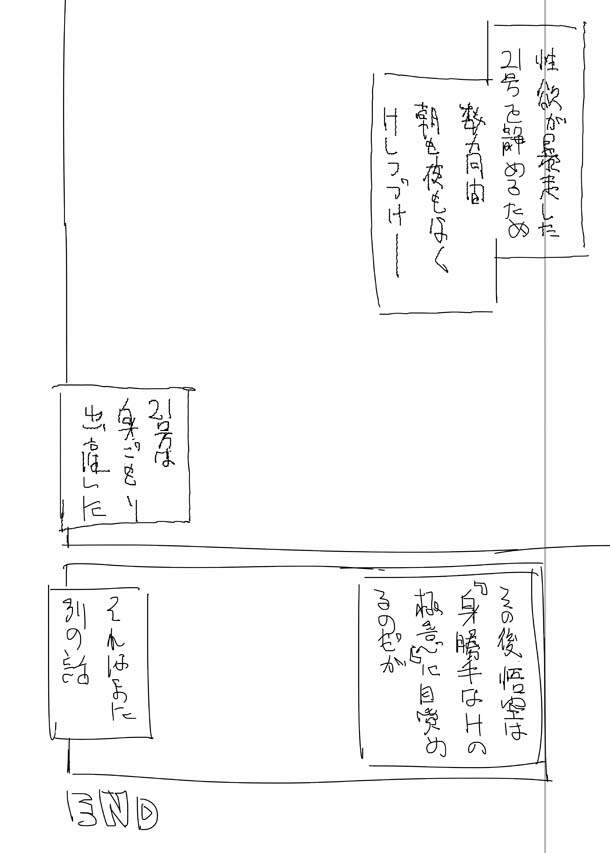 性欲が暴走した
21号を静めるため
数カ月間
朝も夜もなく
Hしつづけ――
21号は
身ごもり
出産した
その後、悟空は
『身勝手なHの
極意』に目覚め
るのだが
それはまた
別の話
END